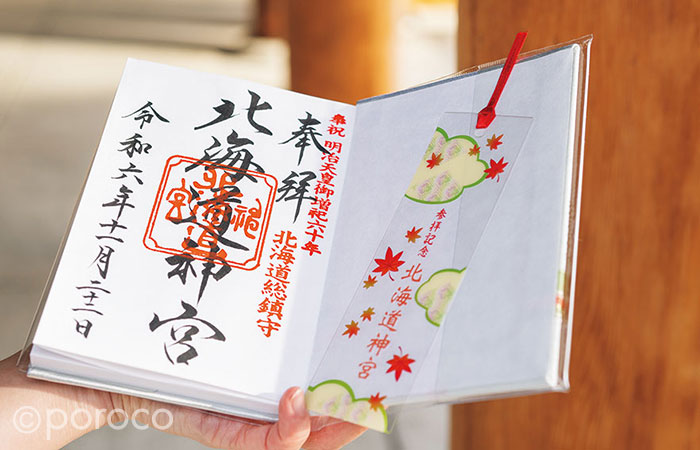 奉祝 明治天皇御増祀六十年
北海道総鎮守
奉拝
北海道神宮
令和六年十一月二十二日
参拝記念
北海道神宮
©poroco